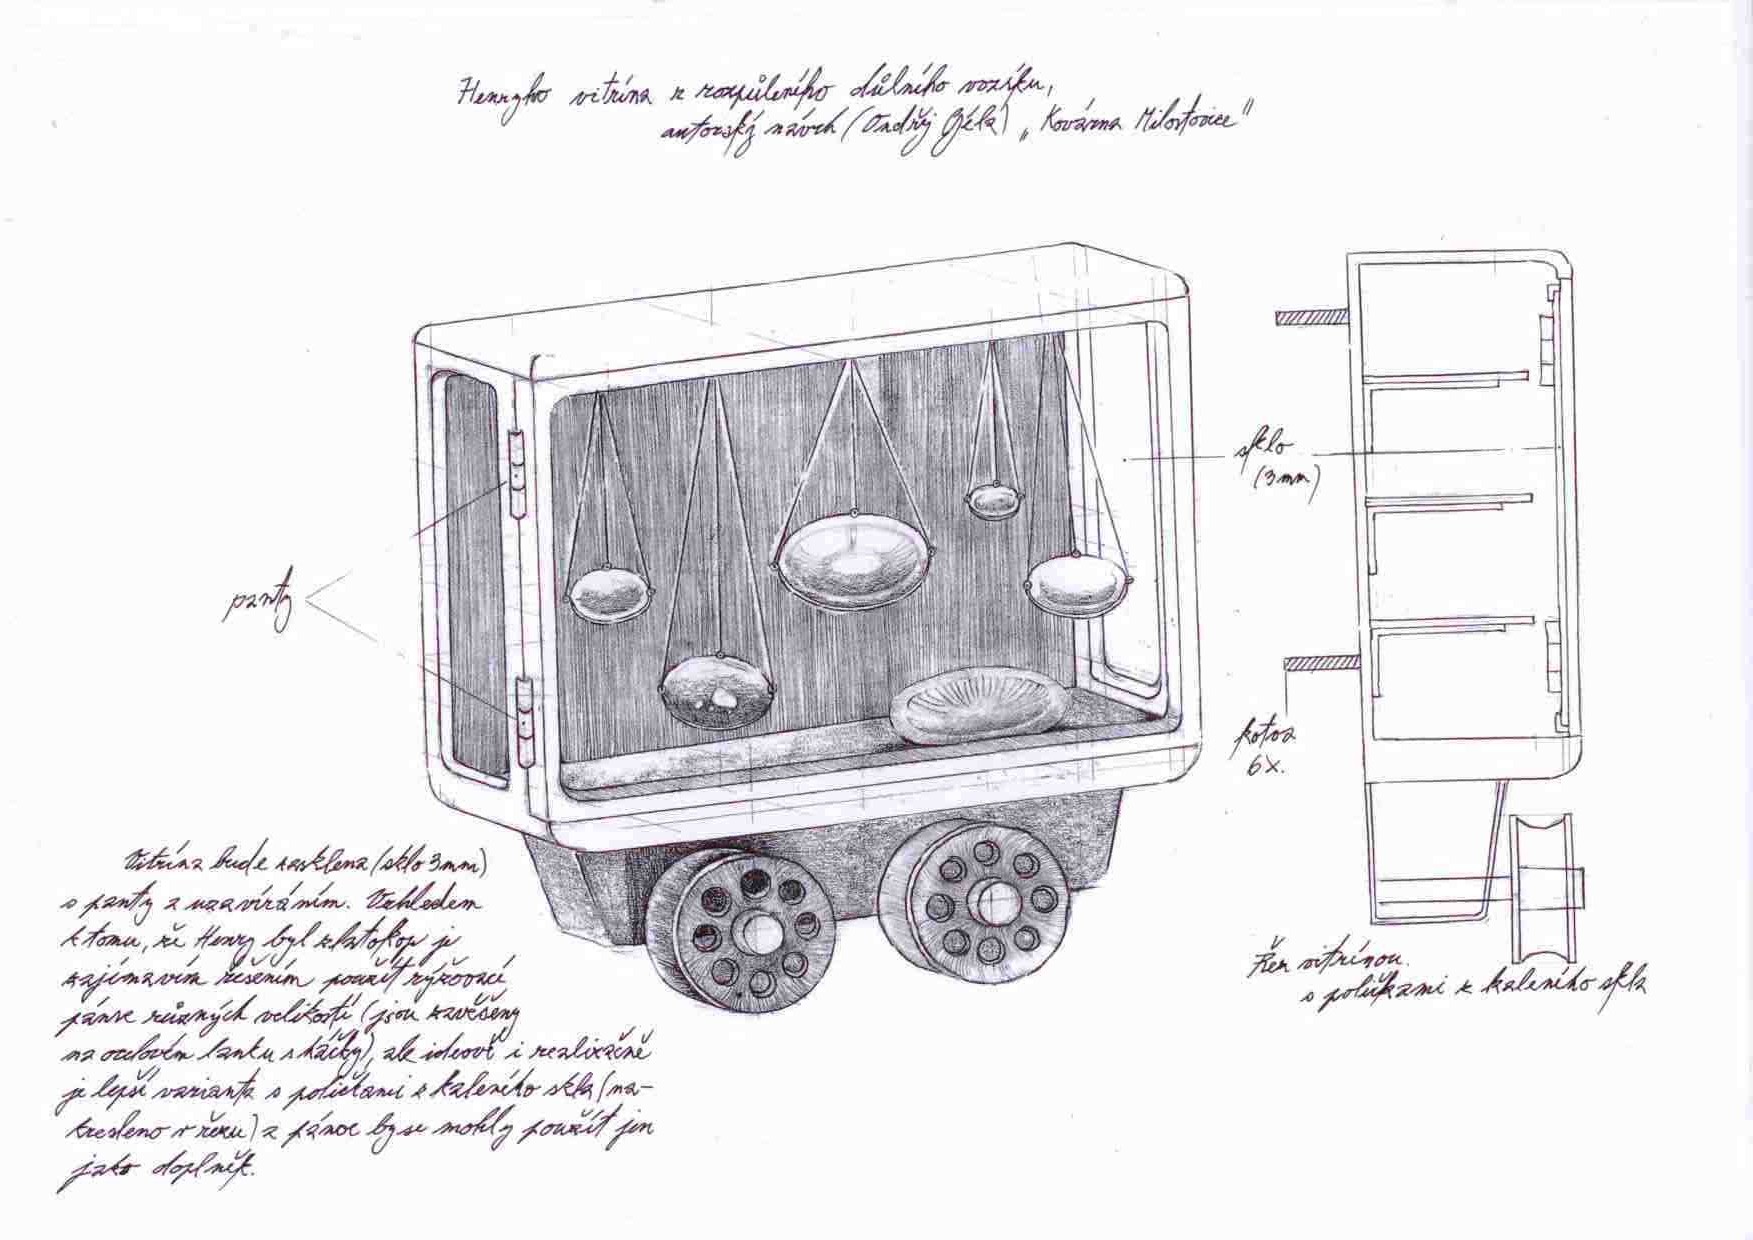 Henryho vitrína z rozpůleného důlního vozíku,
autorský návrh (Ondřej Géla) „Kovárna Milostovice"
sklo
(3mm)
panty
kotva
6x.
Vitrína bude zasklena (sklo 3mm)
s panty a uzavíráním. Vzhledem
k tomu, že Henry byl zlatokop je
zajímavím řešením použít rýžovací
pánve různých velikostí (jsou zavěšeny
na ocelovém lanku s háčky), ale ideově i realizačně
je lepší varianta s poličkami z kaleného skla (na-
kresleno v řezu) a pánve by se mohly použít jen
jako doplněk.
Řez vitrínou.
s poličkami z kaleného skla